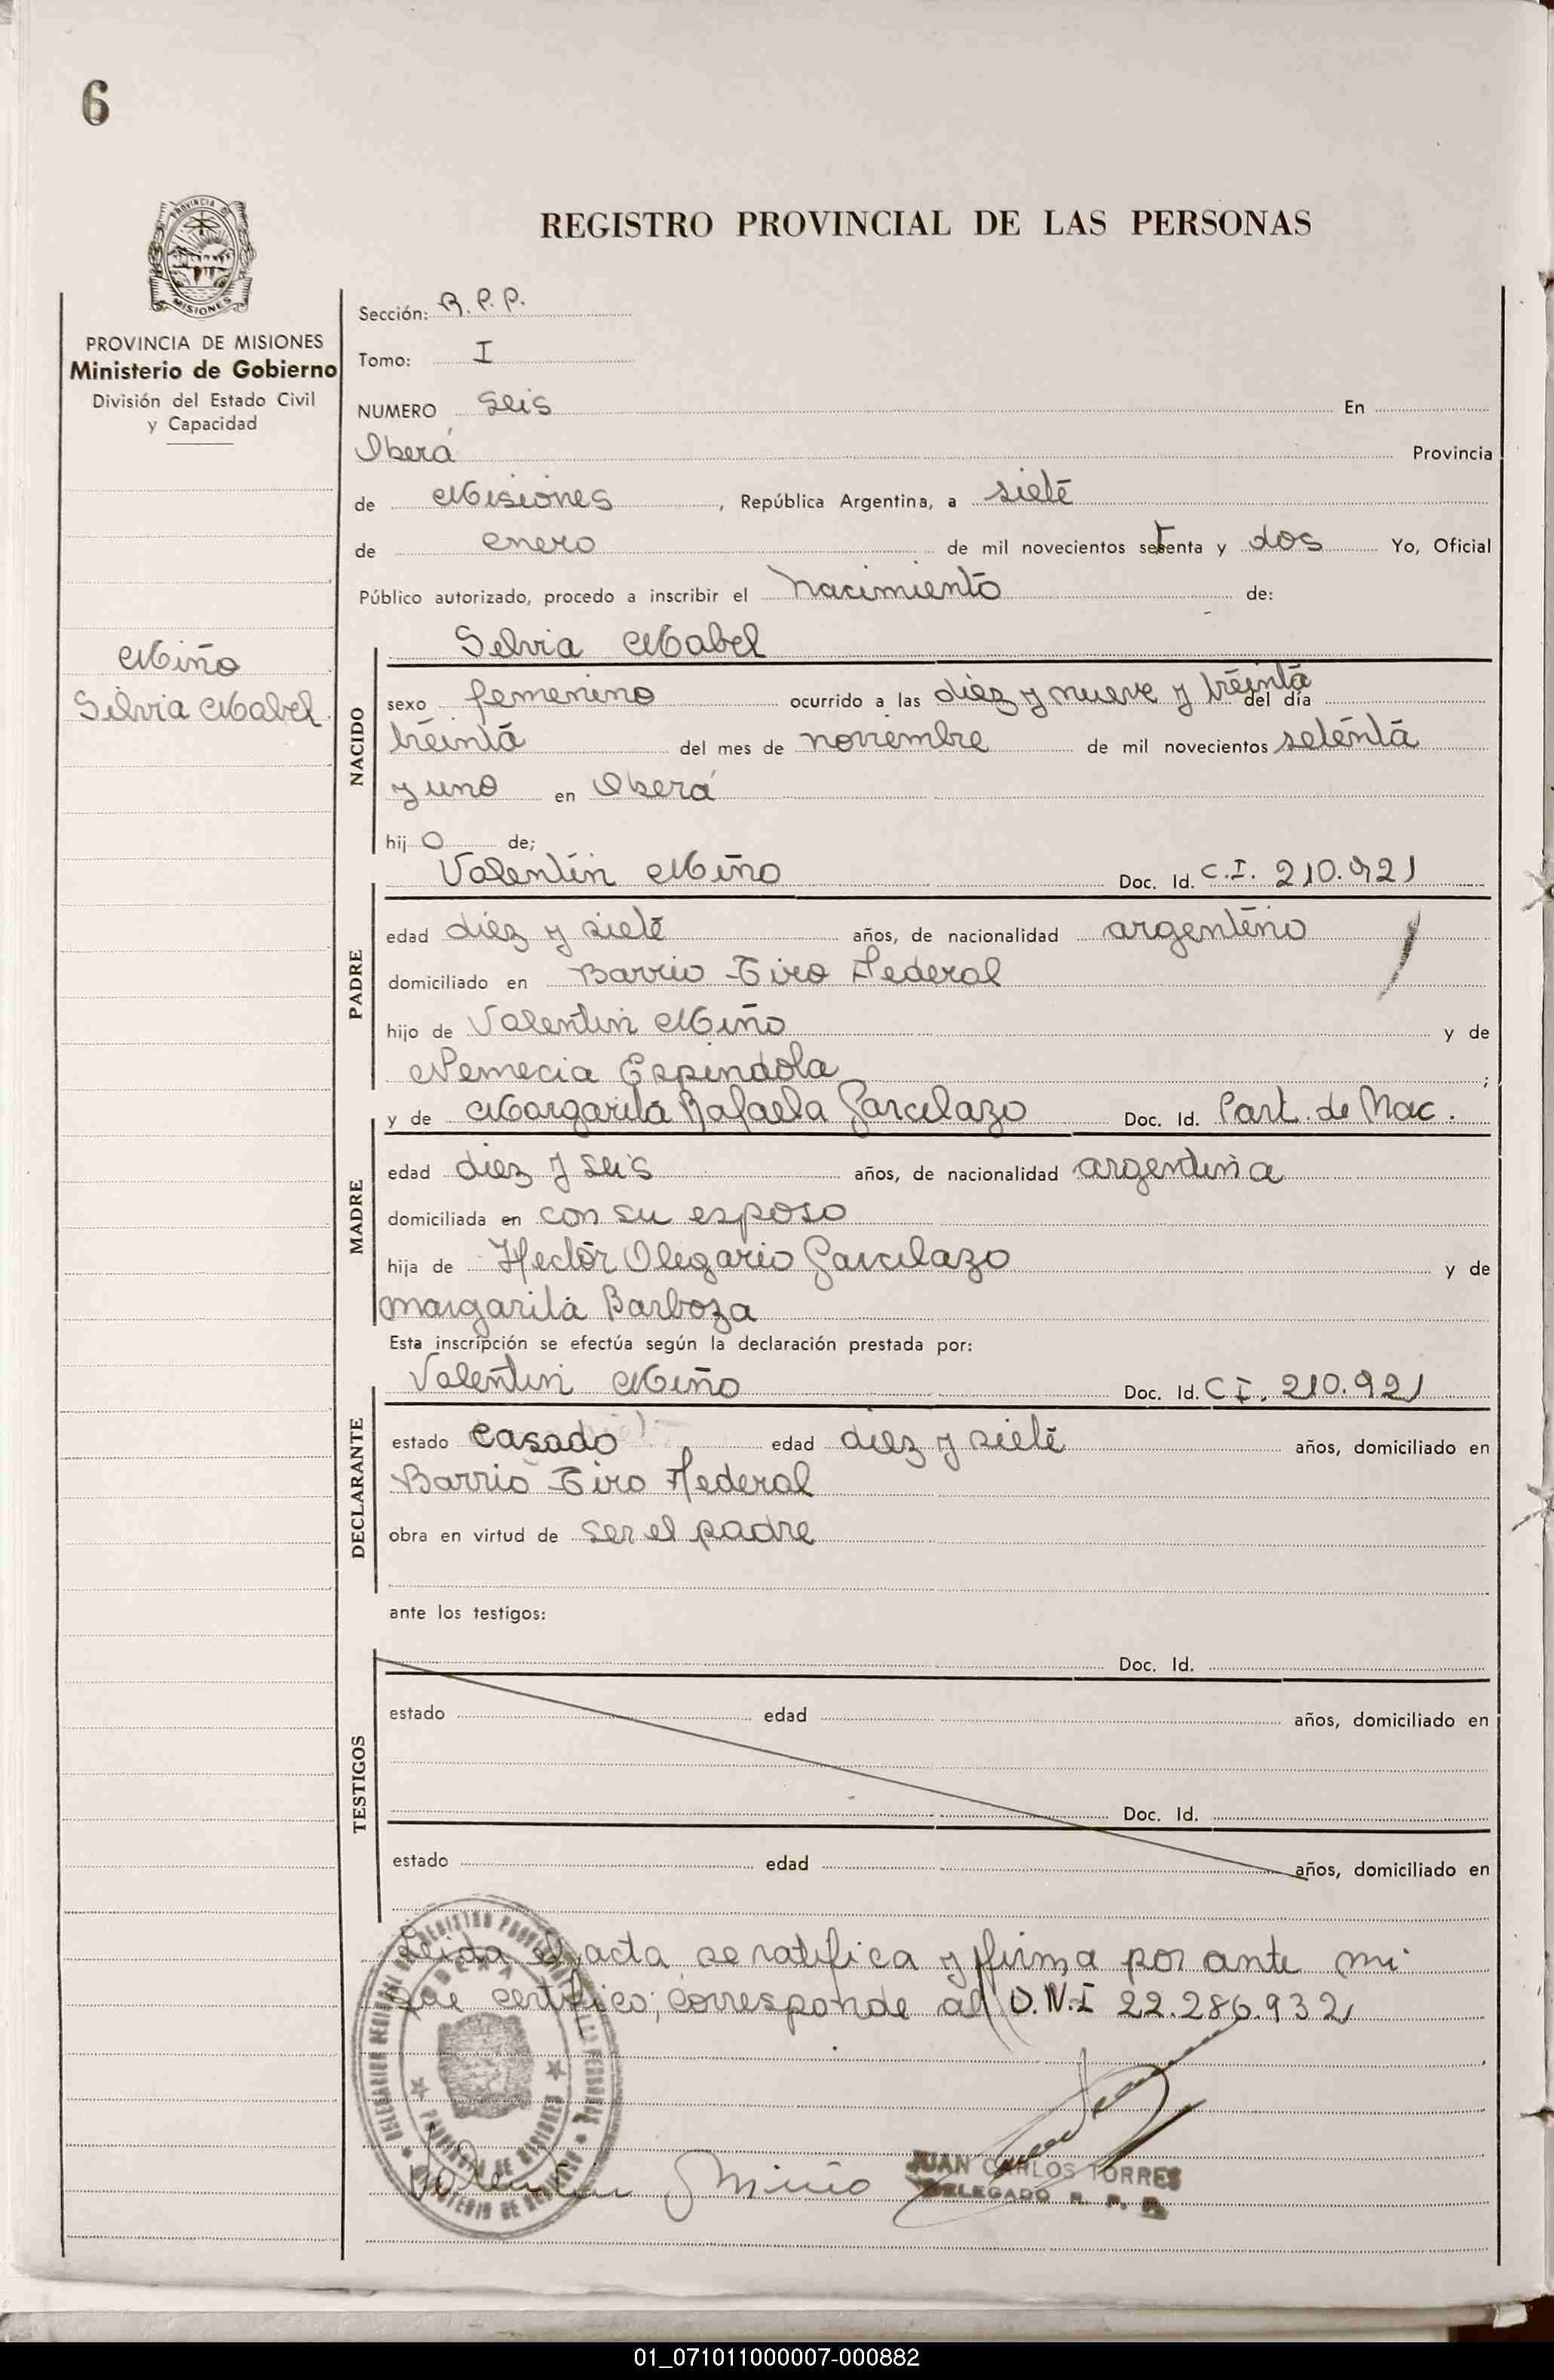 6
PROVINCIA DE
MISIONES
REGISTRO PROVINCIAL DE LAS PERSONAS
PROVINCIA DE MISIONES
Ministerio de Gobierno
División del Estado Civil
y Capacidad
Miño
Silvia Mabel
Sección: R.P.P.
Tomo: I
NUMERO seis En
Oberá Provincia
de Misiones, República Argentina, a siete
de enero de mil novecientos setenta y dos Yo, Oficial
Público autorizado, procedo a inscribir el nacimiento de:
Silvia Mabel
NACIDO
sexo femenino ocurrido a las diez y nueve y treinta del día
treinta del mes de noviembre de mil novecientos setenta
y uno en Oberá
hij O de;
Valentín Miño Doc. Id. C.I. 210.921
PADRE
edad diez y siete años, de nacionalidad argentino
domiciliado en Barrio Tiro Federal
hijo de Valentin Miño y de
Nemecia Espindola ;
y de Margarita Rafaela Garcilazo Doc. Id. Part. de Nac.
MADRE
edad diez y seis años, de nacionalidad argentina
domiciliada en con su esposo
hija de Hector Olegario Garcilazo y de
margarita Barboza
Esta inscripción se efectúa según la declaración prestada por:
Valentin Miño Doc. Id. C.I. 210.921
DECLARANTE
estado casado edad diez y siete años, domiciliado en
Barrio Tiro Federal
obra en virtud de ser el padre
ante los testigos:
TESTIGOS
Doc. Id.
estado edad años, domiciliado en
Doc. Id.
estado edad años, domiciliado en
Leida el acta se ratifica y firma por ante mi
que certifico; corresponde al D.N.I 22.286.932
OBERA
PROVINCIA DE MISIONES
MINISTERIO DE GOBIERNO
Valentin Miño
JUAN CARLOS TORRES
DELEGADO R. P. P.
01_071011000007-000882